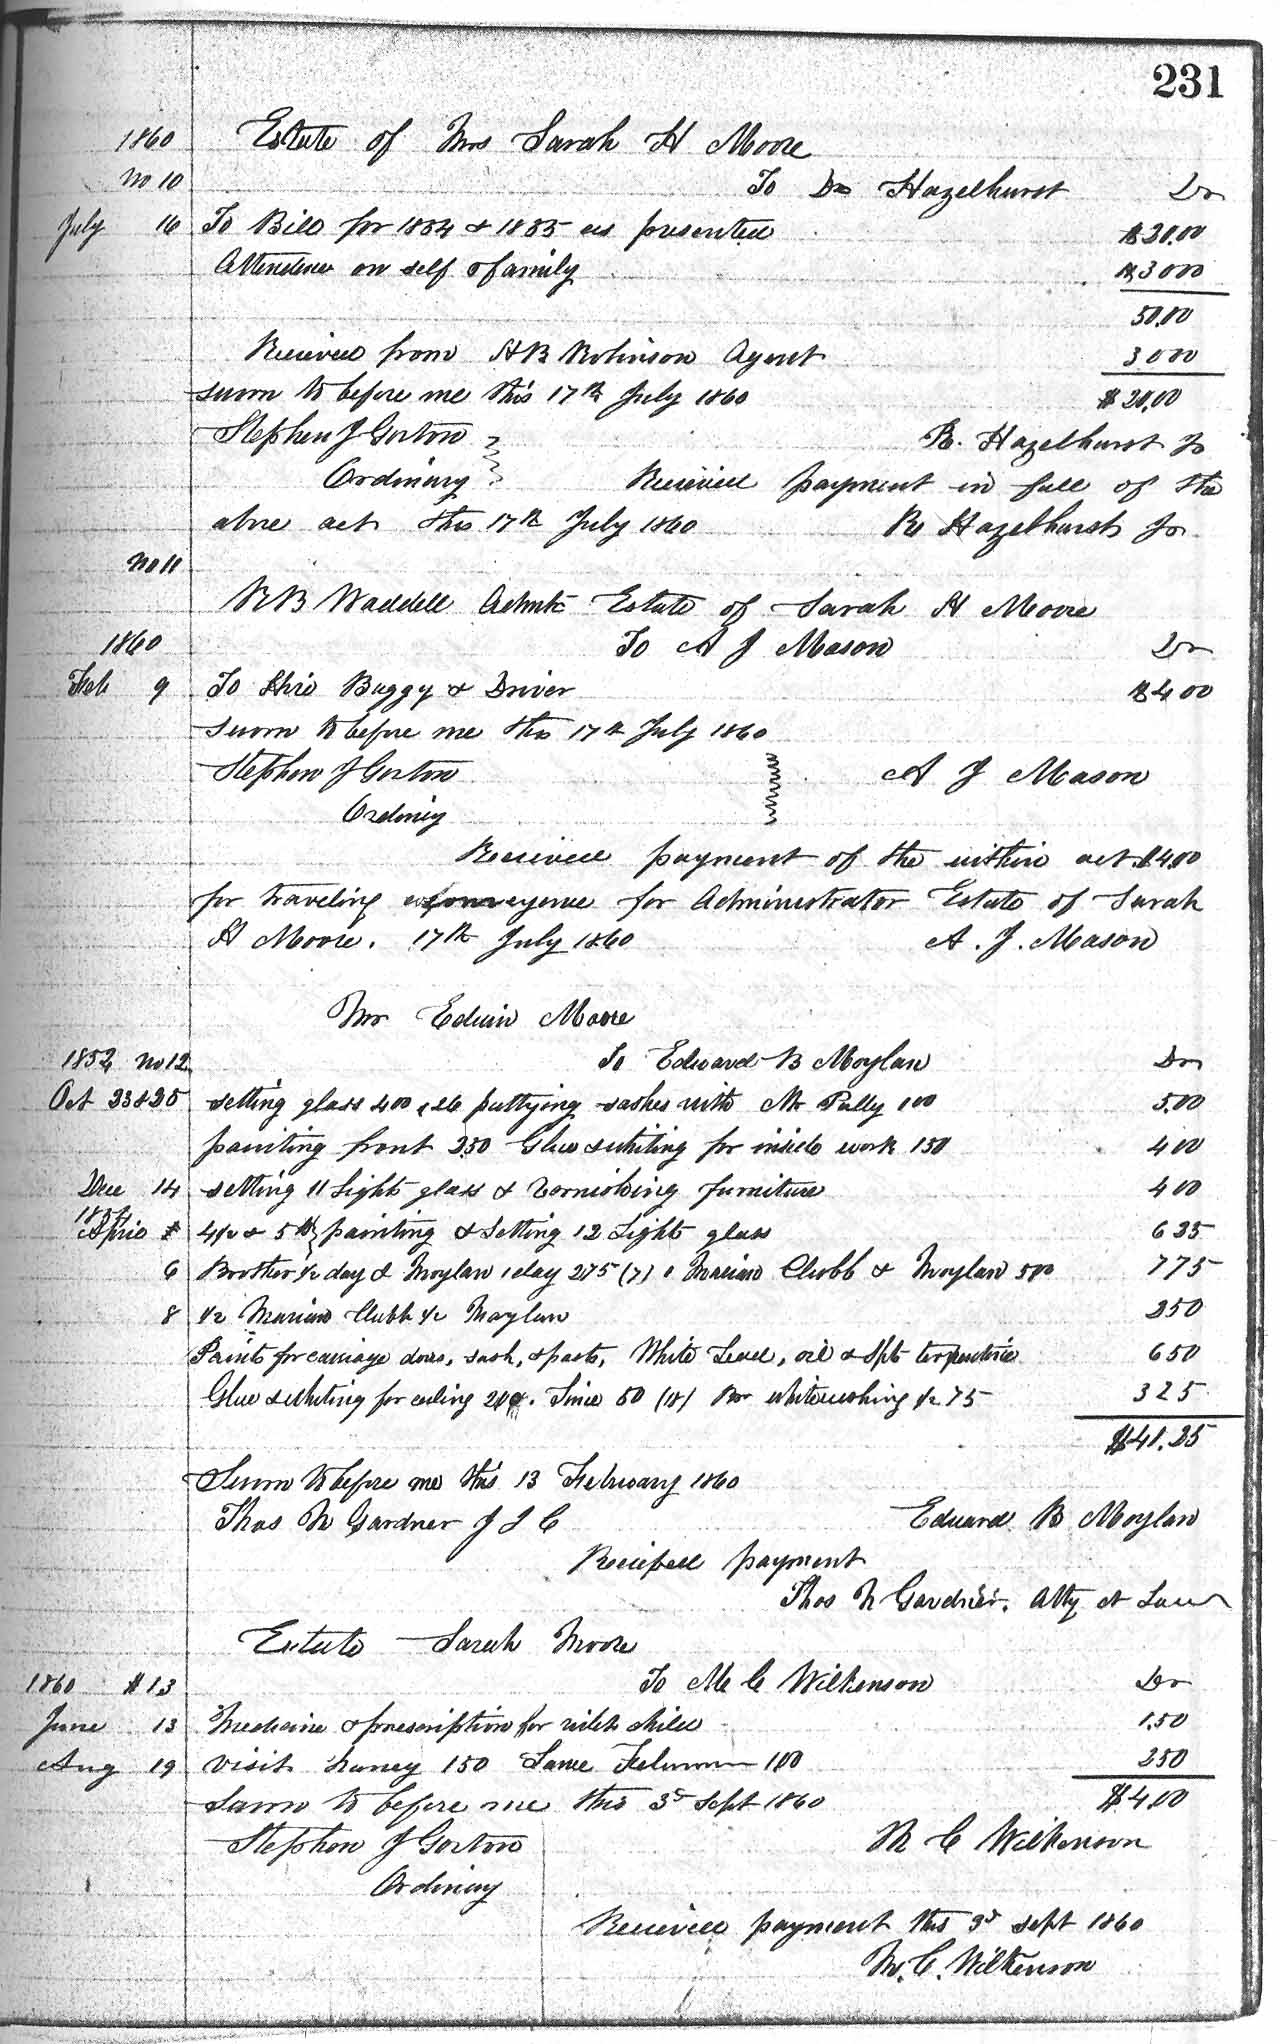 231
1860 Estate of Mrs Sarah H Moore
No 10 To Dr Hazelhurst Dr
July 16 To Bill for 1854 & 1855 as presented $20.00
Attendance on self & family $3000
50.00
Received from H B Robinson Agent 3000
sworn to before me this 17th July 1860 $20.00
Stephen J Gorton R. Hazelhurst Jr
Ordinary Received payment in full of the
above act this 17th July 1860 R Hazelhurst Jr
No 11
R B Waddell Admr Estate of Sarah H Moore
1860 To A J Mason Dr
Feb 9 To Hire Buggy & Driver $400
sworn to before me this 17th July 1860
Stephen J Gorton A J Mason
Ordiny
Received payment of the within act $4.00
for traveling conveyence for Administrator Estate of Sarah
H Moore. 17th July 1860 A. J. Mason
Mr Edwin Moore
1852 No 12 To Edward B Moylan Dr
Oct 23 & 25 setting glass 400 puttying sashes with Mr Pully 100 5.00
painting front 250 Glue & whiting for inside work 150 400
Dec 14 setting 11 Lights glass & varnishing furniture 400
April 4 1/2 & 5th painting & Setting 12 Lights glass 625
6 Brother 1/2 day & Moylan 1 day 275 (7) Marian Chubb & Moylan 500 775
8 1/2 Marian Clubb 1/2 Moylan 250
Paints for carriage doors, sash, & posts, White Lead, oil & Spts terpentine 650
Glue & whiting for ceiling 200. Lime 50 (18) whitewashing 1/2 75 325
$41.25
Sworn to before me this 13 February 1860
Thos N Gardner J I C Edward B Moylan
Received payment
Thos N Gardner. Atty at Law
Estate Sarah Moore
1860 $13 To M C Wilkenson Dr
June 13 Medicine & prescription for child 1.50
Aug 19 visit 150 Same 100 250
Sworn to before me this 3d Sept 1860 $4.00
Stephen J Gorton M C Wilkenson
Ordinary
Received payment this 3d Sept 1860
M. C. Wilkenson